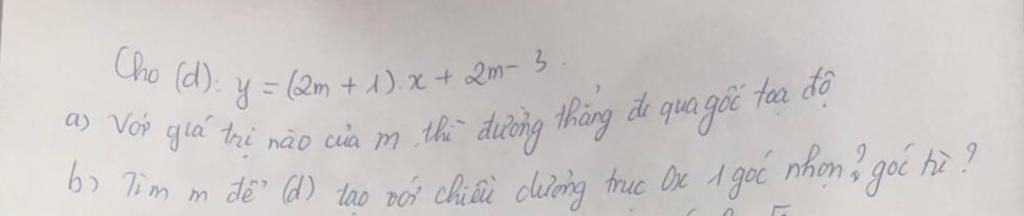 Cho (d): y = (2m + 1).x + 2m - 3.
a) Với giá trị nào của m thì đường thẳng đi qua gốc toạ độ
b) Tìm m để (d) tạo với chiều dương trục Ox 1 góc nhọn? góc tù?